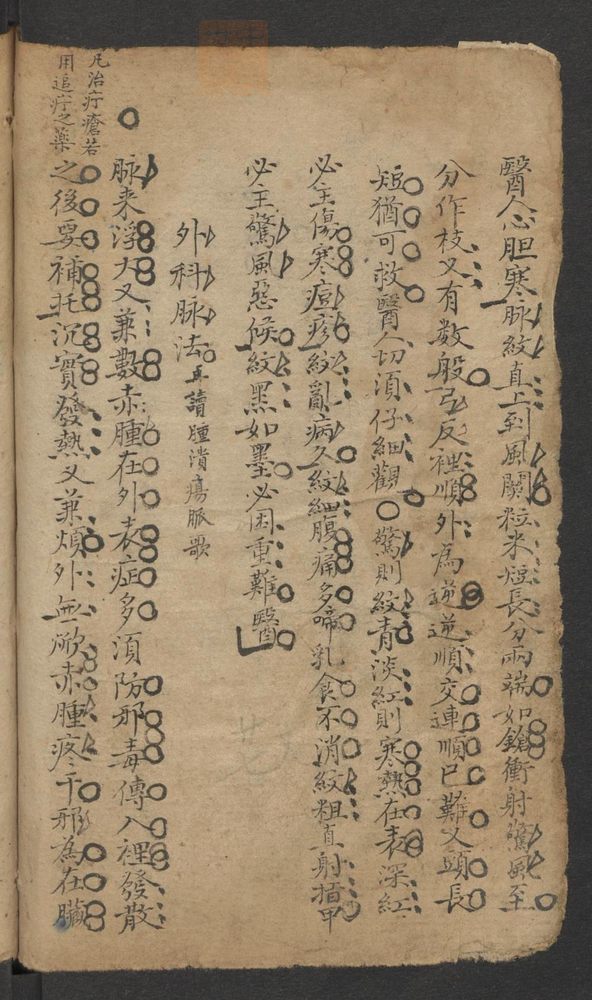 醫人心胆寒脉紋直上到風關粒米短長分兩端如鎗衝射驚風至
分作枝义有数般弓反裡順外為逆逆順交連順已難义頭長
短猶可救醫人切湏仔細觀〇驚則紋青淡紅則寒熱在表深紅
必主傷寒痘疹紋亂病久紋細腹痛多啼乳食不消紋粗直射指甲
必主驚風惡候紋黑如墨必困重難醫
外科脉法再讀腫潰瘍脈歌
脉来浮大又兼數赤腫在外表症多湏防邪毒傳入裡發散
之後要補托沉實發熱又兼煩外無㶷赤腫疼干邪為在臟
凡治疔瘡若
用追疔之藥